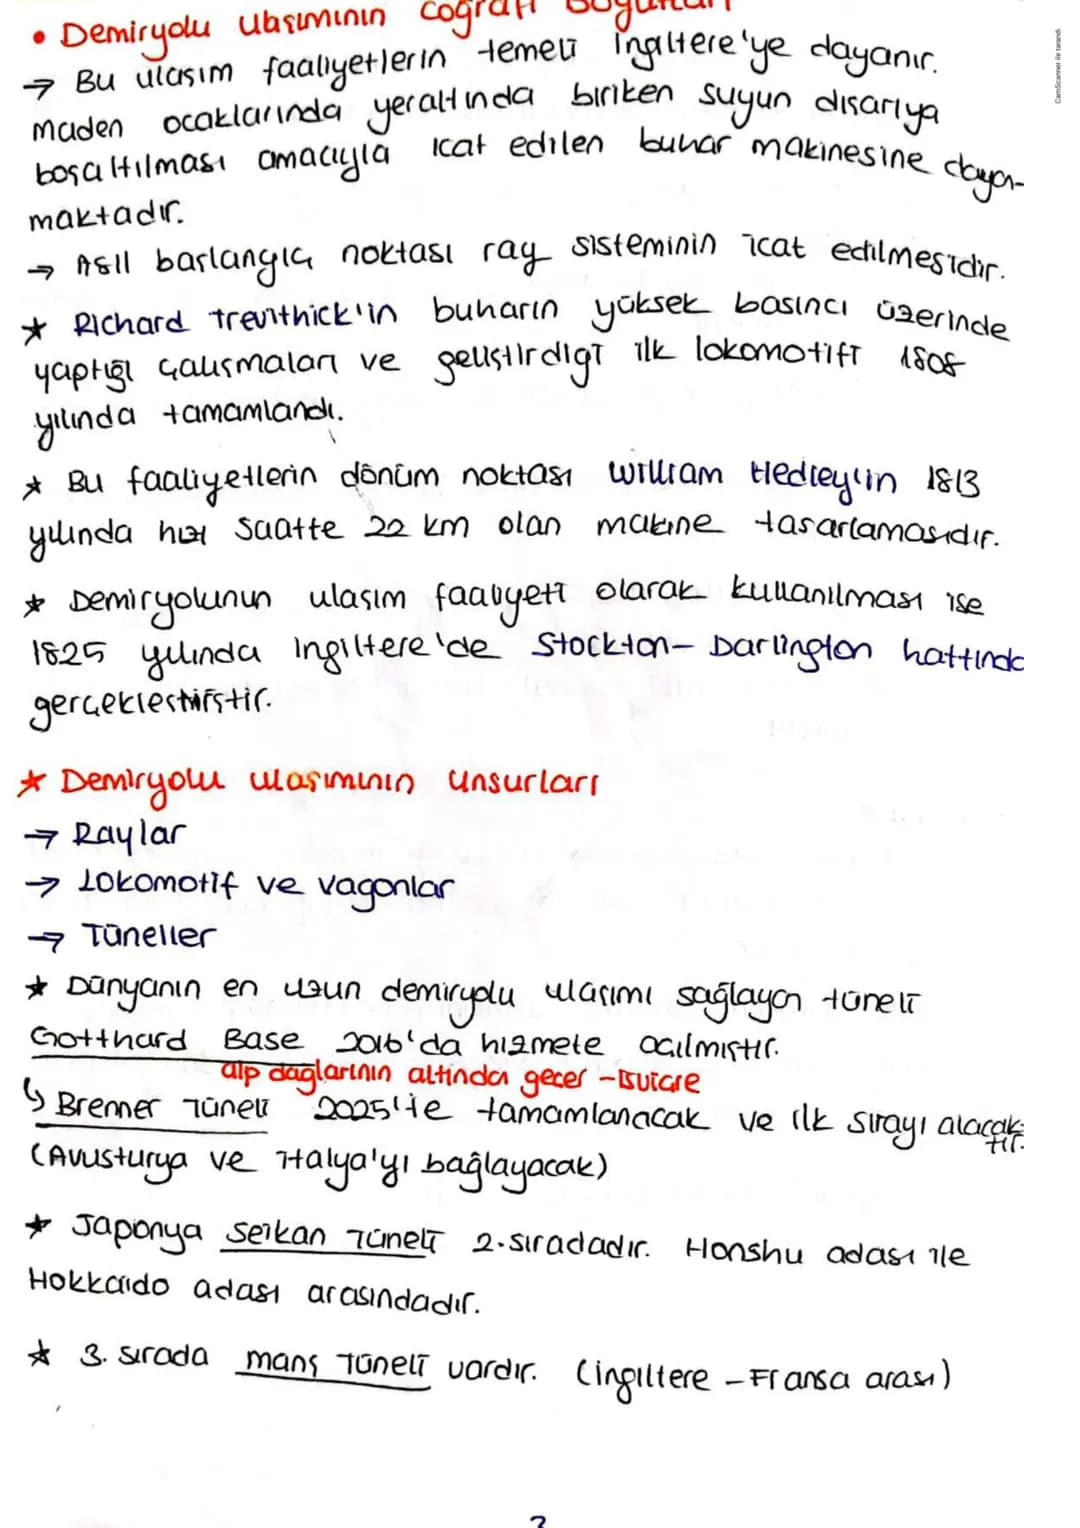 • Demiryolu ulaşımının coğrafi boyutları
→ Bu ulaşım faaliyetlerin temeli İngiltere'ye dayanır.
maden ocaklarında yeraltında biriken suyun dışarıya
boşaltılması amacıyla icat edilen buhar makinesine dayan-
maktadır.
→ Asıl başlangıç noktası ray sisteminin icat edilmesidir.
★ Richard trevithick'in buharın yüksek basıncı üzerinde
yaptığı çalışmaları ve geliştirdiği ilk lokomotifi 1808
yılında tamamlandı.
★ Bu faaliyetlerin dönüm noktası William Hedley'in 1813
yılında hızı saatte 22 km olan makine tasarlamasıdır.
★ Demiryolunun ulaşım faaliyeti olarak kullanılması ise
1825 yılında İngiltere'de Stockton - Darlington hattında
gerçekleştirilmiştir.
★ Demiryolu ulaşımının unsurları
→ Raylar
→ Lokomotif ve vagonlar
→ Tüneller
★ Dünyanın en uzun demiryolu ulaşımı sağlayan tüneli
Gotthard Base 2016'da hizmete açılmıştır.
alp dağlarının altından geçer - İsviçre
↳ Brenner Tüneli 2025'te tamamlanacak ve ilk sırayı alacaktır.
(Avusturya ve İtalya'yı bağlayacak)
★ Japonya Seikan Tüneli 2. sıradadır. Honshu adası ile
Hokkaido adası arasındadır.
★ 3. sırada manş Tüneli vardır. (ingiltere - Fransa arası)
CamScanner ile tarandı